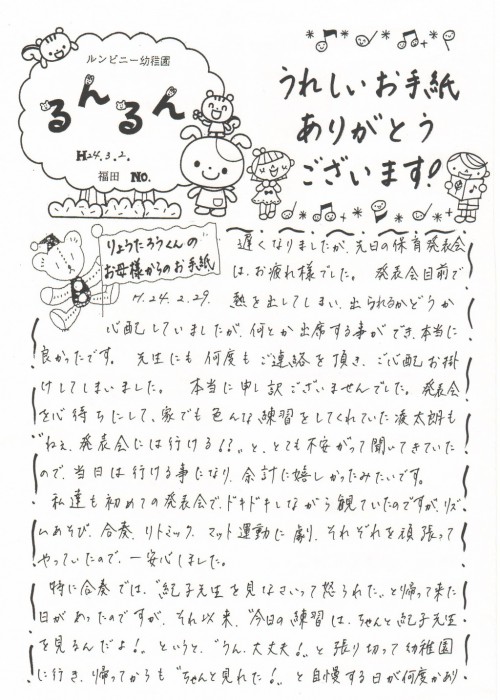 ルンビニー幼稚園
るんるん
H24.3.2.
福田 NO.
うれしいお手紙
ありがとう
ございます!
りょうたろうくんの
お母様からのお手紙
H.24.2.29.
遅くなりましたが、先日の保育発表会
は、お疲れ様でした。 発表会目前で
熱を出してしまい、出られるかどうか
心配していましたが、何とか出席する事ができ、本当に
良かったです。 先生にも何度もご連絡を頂き、ご心配お掛
けしてしまいました。 本当に申し訳ございませんでした。 発表会
を心待ちにして、家でも色んな練習をしてくれていた凌太朗も
"ねぇ、発表会には行ける!?"と、とても不安がって聞いてきていた
ので、当日は行ける事になり、余計に嬉しかったみたいです。
私達も初めての発表会で、ドキドキしながら観ていたのですが、リズ
ムあそび、合奏、リトミック、マット運動に劇、それぞれを頑張って
やっていたので、一安心しました。
特に合奏では、"紀子先生を見なさいって怒られた"と帰って来た
日があったのですが、それ以来、"今日の練習は、ちゃんと紀子先生
を見るんだよ!"というと、"うん、大丈夫!"と張り切って幼稚園
に行き、帰ってからも"ちゃんと見れた!"と自慢する日が何度かあり